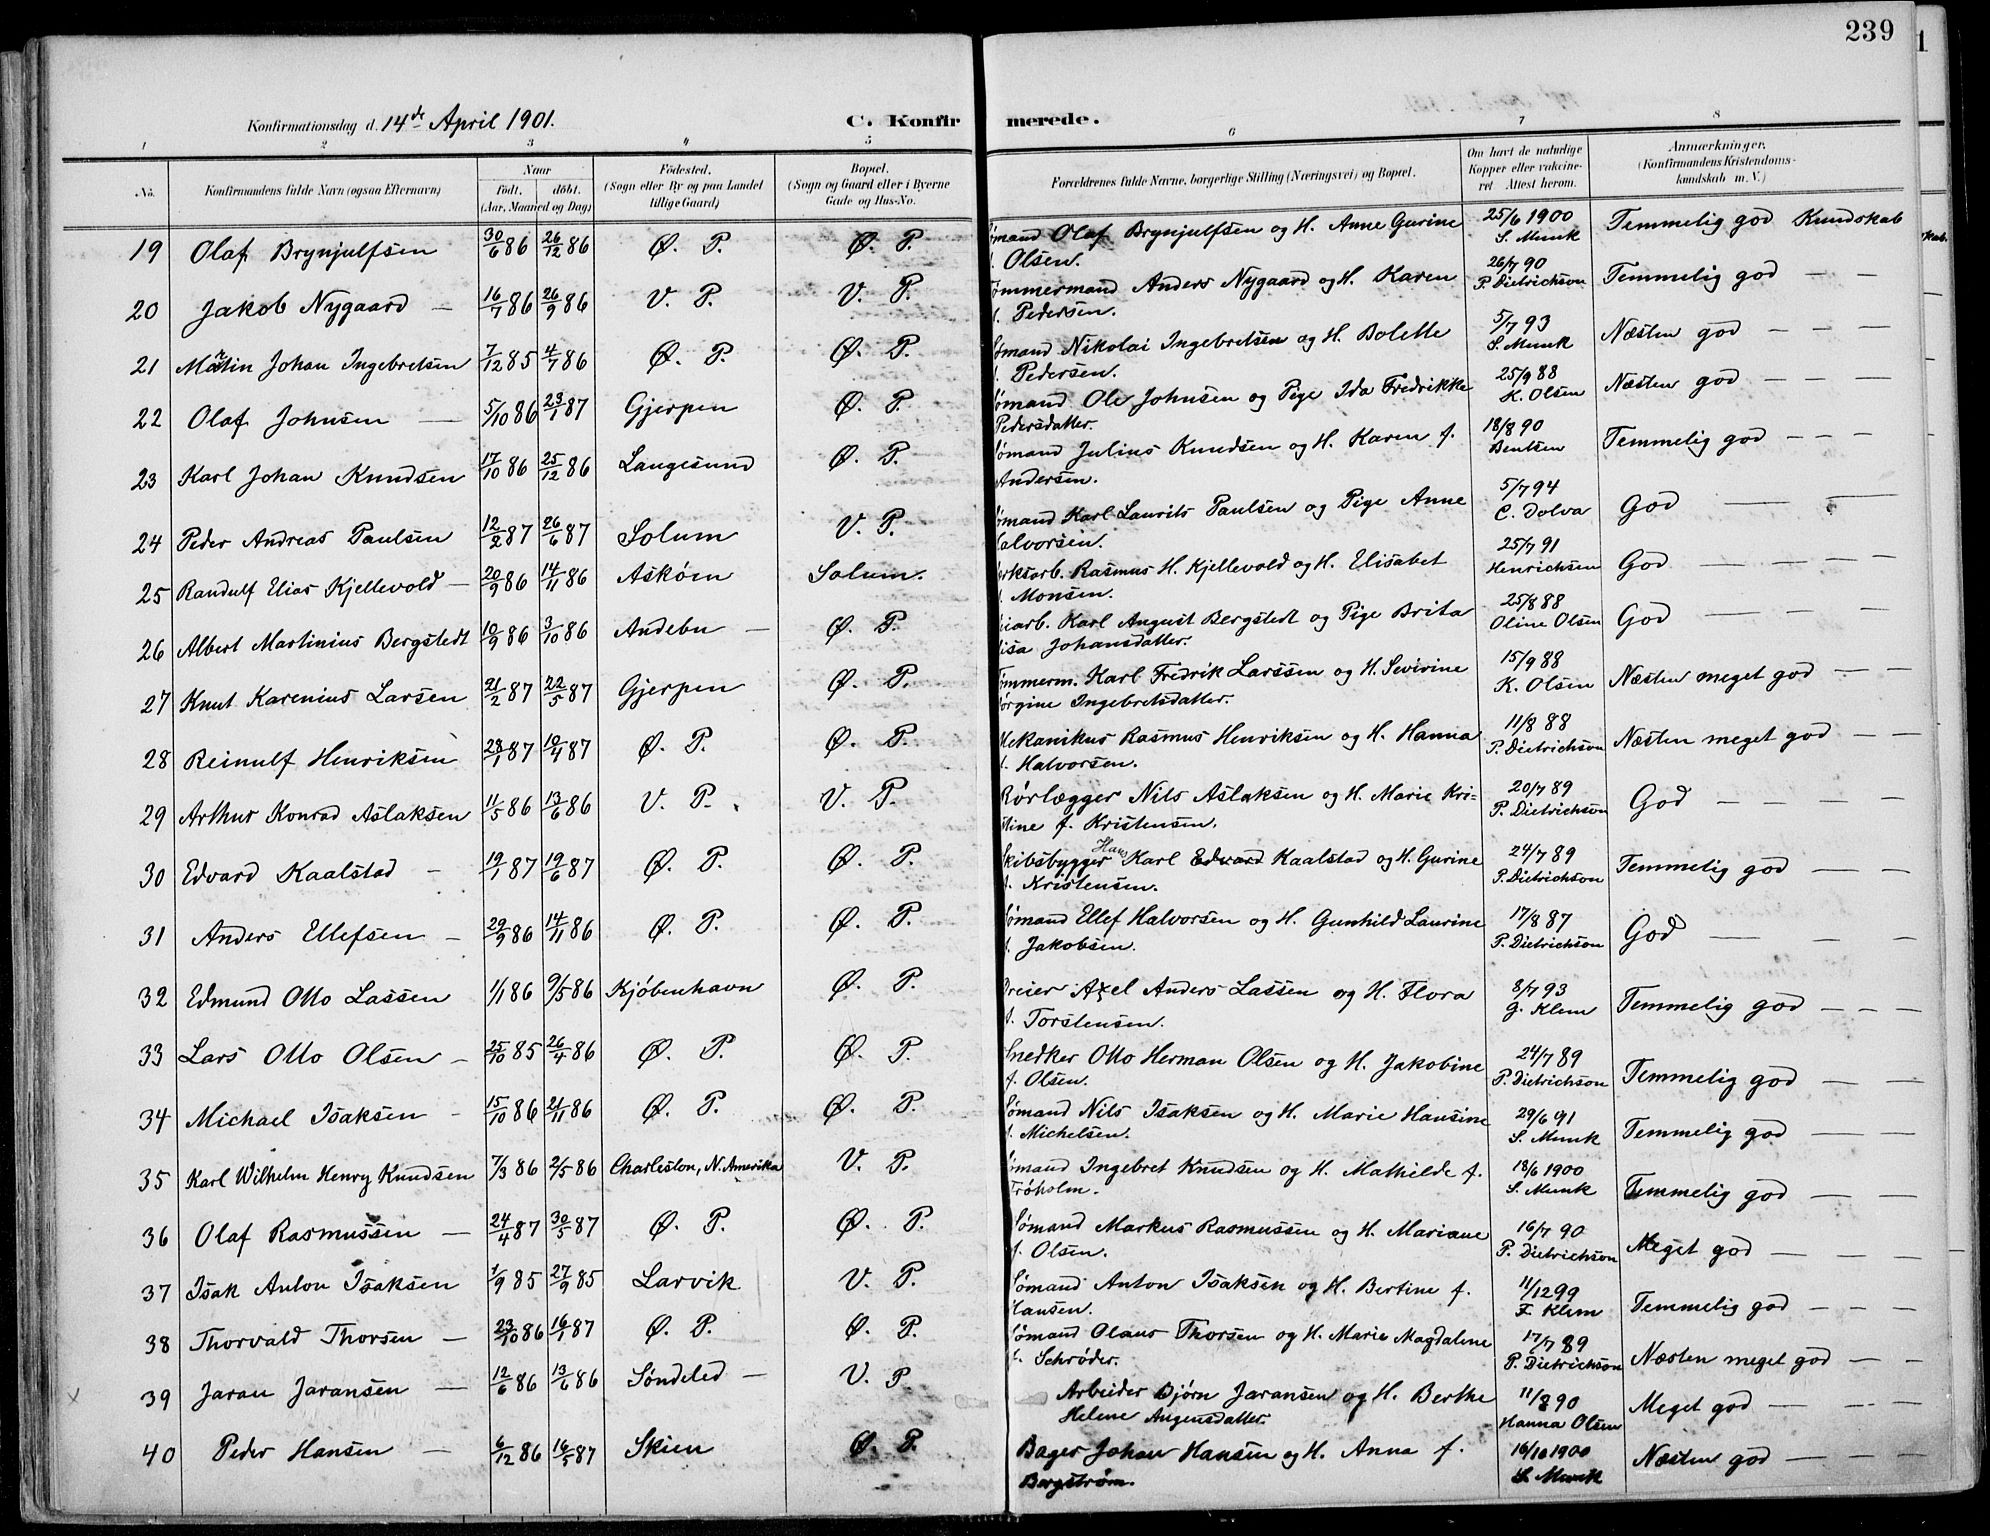 239
Konfirmationsdag d. 14de April 1901.
C. Konfirmerede.
1 2 3 4 5 6 7 8
No. Konfirmandens fulde Navn (ogsaa Efternavn) Naar født. døbt. (Aar, Maaned og Dag) Fødested. (Sogn eller By og paa Landet tillige Gaard) Bopæl. (Sogn og Gaard eller i Byerne Gade og Hus-No. Forældrenes fulde Navne, borgerlige Stilling (Næringsvei) og Bopæl. Om havt de naturlige Kopper eller vakcineret Attest herom. Anmærkninger. (Konfirmandens Kristendomskundskab m. V.)
19 Olaf Brynjulfsen 30/6 86 26/12 86 Ø. P. Ø. P. ømand Olaf Brynjulfsen og H. Anne Gurine 25/6 1900 Temmelig god Kundskab
f. Olsen. S. Munk
20 Jakob Nygaard — 16/7 86 26/9 86 V. P. V. P. ømmermand Anders Nygaard og H. Karen 26/7 90 Temmelig god — —
f. Pedersen. P. Dietrichson
21 Martin Johan Ingebretsen 7/12 85 4/7 86 Ø. P. Ø. P. ømand Nikolai Ingebretsen og H. Bolette 5/7 93 Næsten god — — —
f. Pedersen. S. Munk
22 Olaf Johnsen — 5/10 86 23/1 87 Gjerpen Ø. P. ømand Ole Johnsen og Pige Ida Fredrikke 25/9 88 Næsten god — — —
Pedersdatter. K. Olsen
23 Karl Johan Knudsen 17/10 86 25/12 86 Langesund Ø. P. ømand Julius Knudsen og H. Karen f. 18/8 90 Temmelig god — — —
Andersen. Bentsen
24 Peder Andreas Paulsen 12/2 87 26/6 87 Solum V. P. ømand Karl Laurits Paulsen og Pige Anne 5/7 94 God — —
alvorsen. C. Dolva
25 Randulf Elias Kjellevold — 20/9 86 14/11 86 Askøen Solum. rksarb. Rasmus H. Kjellevold og H. Elisabet 25/7 91 God — — —
f. Monsen. Henrichsen
26 Albert Martinius Bergstedt 10/9 86 3/10 86 Andebu — Ø. P. iarb. Karl August Bergstedt og Pige Brita 25/8 88 God — — —
isa Johansdatter. Oline Olsen
27 Knut Karenius Larsen 21/2 87 22/5 87 Gjerpen Ø. P. ømmerm. Karl Fredrik Larssen og H. Sevirine 15/9 88 Næsten meget god — —
ørgine Ingebretsdatter. K. Olsen
28 Reinulf Henriksen 28/1 87 10/4 87 Ø. P. Ø. P. Mekanikus Rasmus Henriksen og H. Hanna 11/8 88 Næsten meget god — —
f. Halvorsen. P. Dietrichson
29 Arthur Konrad Aslaksen 11/5 86 13/6 86 V. P. V. P. Rørlægger Nils Aslaksen og H. Marie Kri- 20/7 89 God — — —
stine f. Kristensen. P. Dietrichson
30 Edvard Kaalstad — 19/1 87 19/6 87 Ø. P. Ø. P. Skibsbygger Hans Karl Edvard Kaalstad og H. Gurine 24/7 89 Temmelig god — —
f. Kristensen. P. Dietrichson
31 Anders Ellefsen — 29/9 86 14/11 86 Ø. P. Ø. P. ømand Ellef Halvorsen og H. Gunhild Laurine 17/8 87 God — — —
f. Jakobsen. P. Dietrichson
32 Edmund Otto Lassen 1/1 86 9/5 86 Kjøbenhavn Ø. P. reier Axel Anders Lassen og H. Flora 8/7 93 Temmelig god — — —
f. Torstensen. G. Klem
33 Lars Otto Olsen — 25/10 85 26/4 86 Ø. P. Ø. P. Snedker Otto Herman Olsen og H. Jakobine 24/7 89 Temmelig god — —
f. Olsen. P. Dietrichson
34 Michael Isaksen - 15/10 86 21/11 86 Ø. P. Ø. P. Sømand Nils Isaksen og H. Marie Hansine 29/6 91 Temmelig god — —
f. Michelsen. S. Munk
35 Karl Wilhelm Henry Knudsen 7/3 86 2/5 86 Charleston, N. Amerika V. P. ømand Ingebret Knudsen og H. Mathilde f. 18/6 1900 Temmelig god — —
Frøholm. S. Munk
36 Olaf Rasmussen — 24/4 87 30/5 87 Ø. P. Ø. P. Sømand Markus Rasmussen og H. Mariane 16/7 90 Meget god — — —
f. Olsen. P. Dietrichson
37 Isak Anton Isaksen 1/9 85 27/9 85 Larvik V. P. Sømand Anton Isaksen og H. Bertine f. 11/12 99 Temmelig god — — —
Hansen. F. Klem
38 Thorvald Thorsen — 23/10 86 16/1 87 Ø. P. Ø. P. Sømand Olaus Thorsen og H. Marie Magdalene 17/7 89 Næsten meget god — —
f. Schrøder. P. Dietrichson
39 Jaran Jaransen — 12/6 86 13/6 86 Søndeled — V. P Arbeider Bjørn Jaransen og H. Berthe 11/8 90 Meget god — — —
Helene Augensdatter. Hanna Olsen
40 Peder Hansen — 6/12 86 16/5 87 Skien Ø. P. Bager Johan Hansen og H. Anna f. 16/10 1900 Næsten god — — —
Bergstrøm. S. Munk